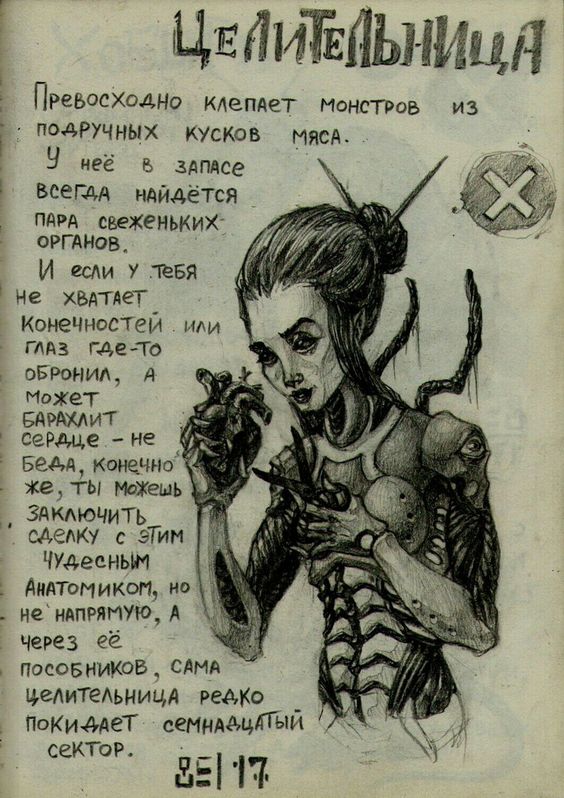 ЦЕЛИТЕЛЬНИЦА
Превосходно клепает монстров из
подручных кусков мяса.
У неё в запасе
всегда найдётся
пара свеженьких
органов.
И если у тебя
не хватает
конечностей или
глаз где-то
обронил, а
может
барахлит
сердце - не
беда, конечно
же, ты можешь
заключить
сделку с этим
чудесным
Анатомиком, но
не напрямую, а
через её
пособников, сама
целительница редко
покидает семнадцатый
сектор.
17